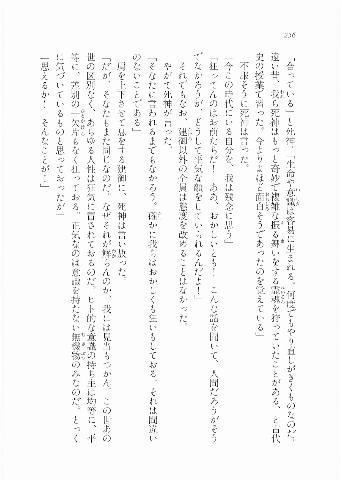 236
「合っている」と死神。「生命や意識は容易に生まれる。何度でもやり直しがきくものなのだ。
遠い昔、我ら死神はもっと奇妙で複雑な振る舞いをする霊魂を狩っていたことがある、と古代
史の授業で習った。今よりよほど面白そうであったのを覚えている」
不服そうに死神は言った。
「今この時代にいる自分を、我は残念に思う」
「狂ってんのはお前たちだ！　ああ、おかしいとも！　こんな話を聞いて、人間だろうがそう
でなかろうが、どうして平気な顔をしていられるんだよ！」
それでもなお、建御以外の全員は態度を改めることはなかった。
やがて死神が言った。
「そなたに言われるまでもなかろう。確かに我らはおかしくも生いもしておる。それは間違い
のないことである」
肩を上下させて息をする建御に、死神は言い放った。
「だが、そなたもまた同じなのだ。なぜそれが解らんのか、我には見当もつかん。この世あの
世の区別なく、あらゆる人性は狂気に冒されておるのだ。ヒト的な意識の持ち主は均等に、平
等に、差別の一欠片もなく狂っておる。正気なのは意識を持たない無機物のみなのだ。とっく
に気づいているものと思っておったが」
「思えるか！　そんなことが！」